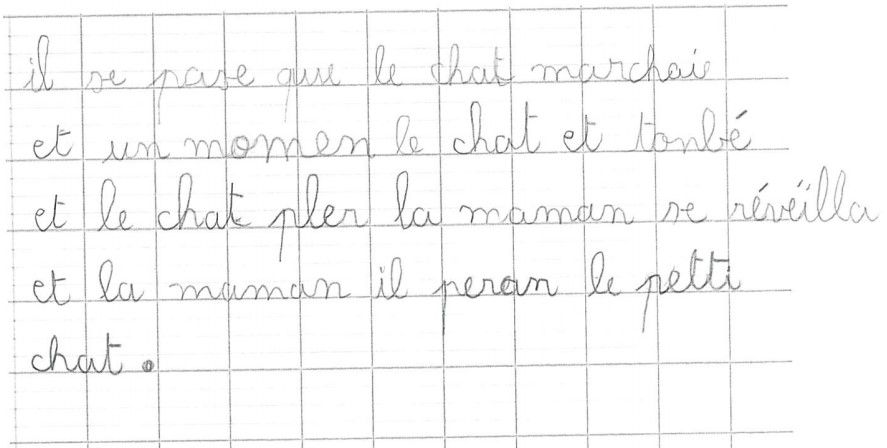 il se passe que le chat marchai
et un momen le chat et tonbé
et le chat pler la maman se révéilla
et la maman il peran le petti
chat.